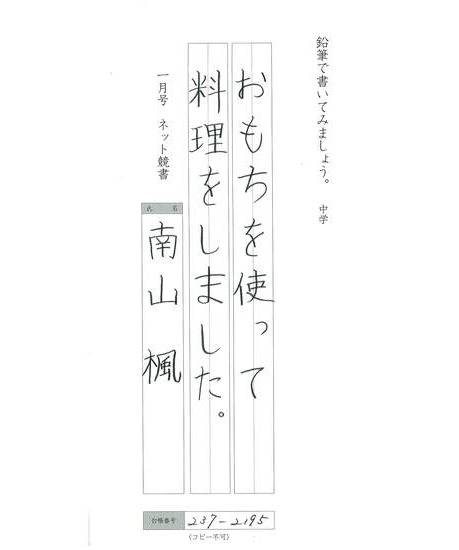 鉛筆で書いてみましょう。 中学
おもちを使って
料理をしました。
一月号 ネット競書
氏名
南山 楓
台帳番号
237-2195
(コピー不可)